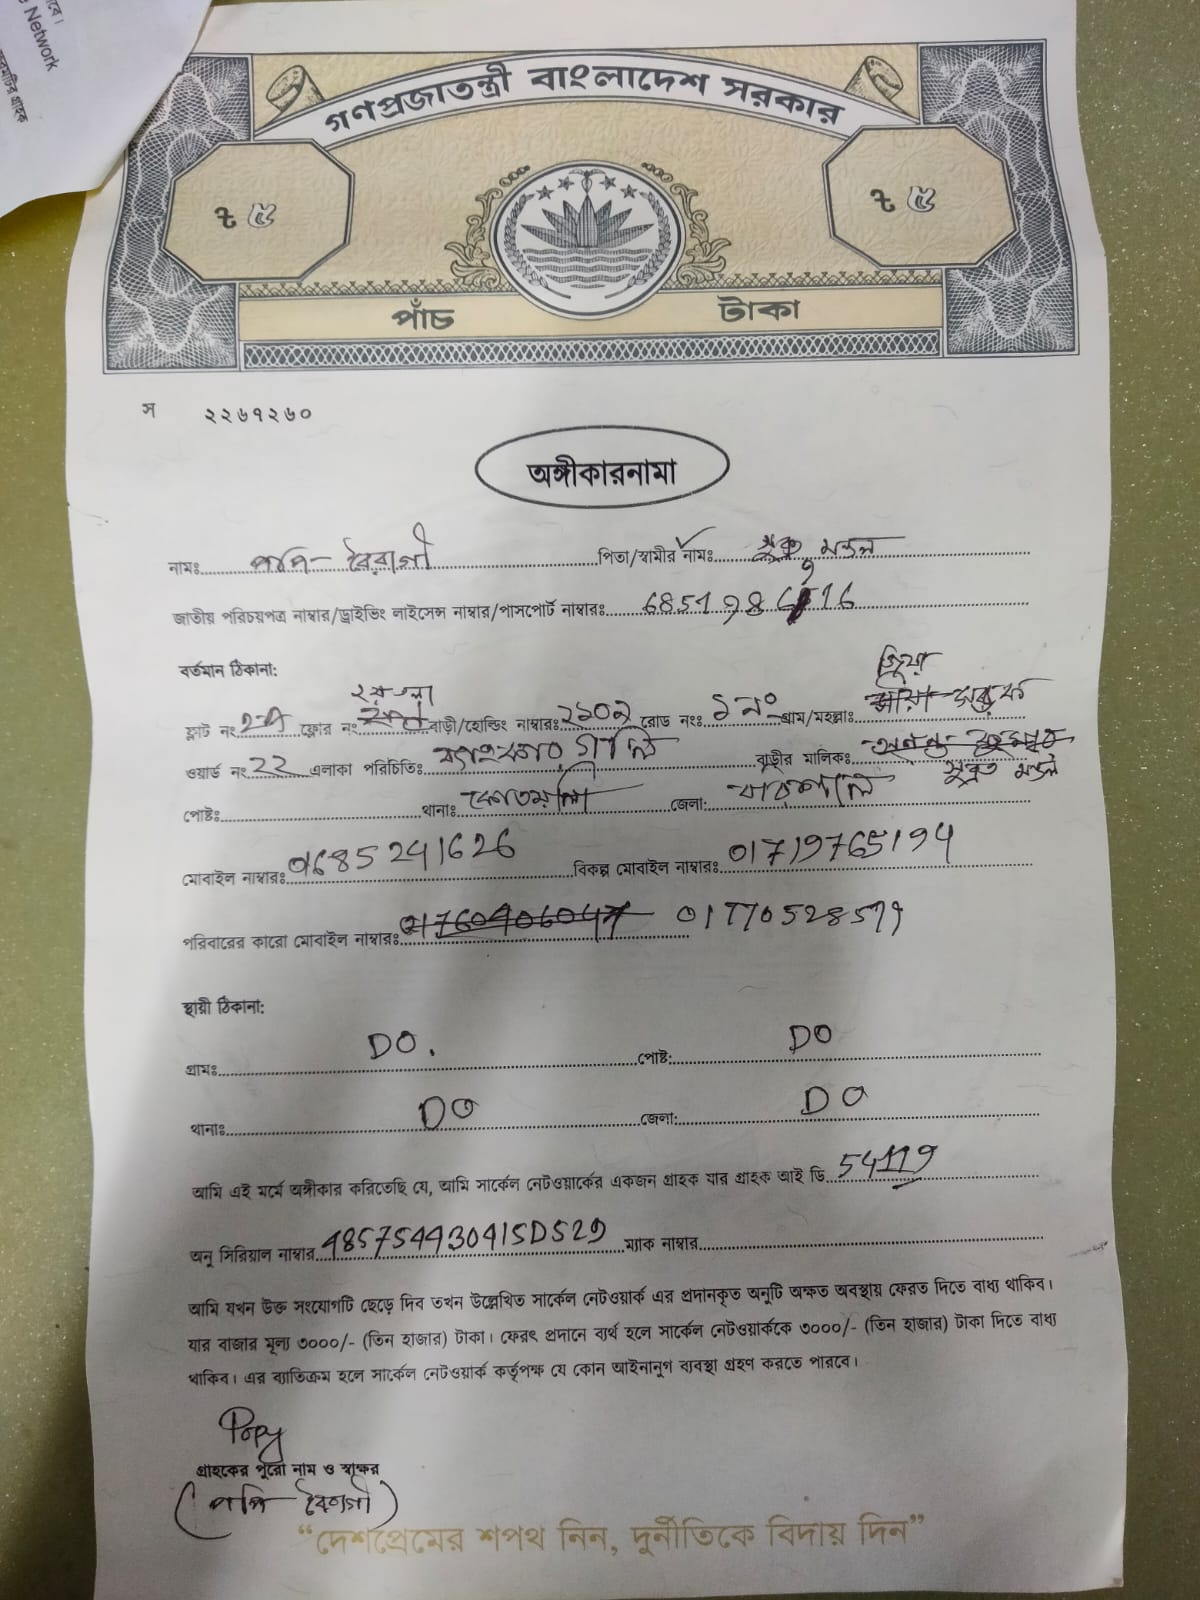 Network
গণপ্রজাতন্ত্রী বাংলাদেশ সরকার
৳ ৫ ৳ ৫
পাঁচ টাকা
স ২২৬৭২৬০
অঙ্গীকারনামা
নামঃ পপি বৈরাগী পিতা/স্বামীর নামঃ মন্ডল
জাতীয় পরিচয়পত্র নাম্বার/ড্রাইভিং লাইসেন্স নাম্বার/পাসপোর্ট নাম্বারঃ
বর্তমান ঠিকানা:
ফ্লাট নং ফ্লোর নং বাড়ী/হোল্ডিং নাম্বারঃ রোড নং: ১ নং গ্রাম/মহল্লাঃ সড়ক
ওয়ার্ড নং 22 এলাকা পরিচিতিঃ গলি বাড়ীর মালিক:
সুব্রত মন্ডল
পোষ্টঃ থানাঃ কোতয়ালি জেলা: বরিশাল
মোবাইল নাম্বারঃ বিকল্প মোবাইল নাম্বারঃ 01719765194
পরিবারের কারো মোবাইল নাম্বারঃ
স্থায়ী ঠিকানা:
গ্রামঃ DO. পোষ্ট: DO
থানাঃ DO জেলা: DO
আমি এই মর্মে অঙ্গীকার করিতেছি যে, আমি সার্কেল নেটওয়ার্কের একজন গ্রাহক যার গ্রাহক আই ডি 54119
অনু সিরিয়াল নাম্বার 485754430415D529 ম্যাক নাম্বার
আমি যখন উক্ত সংযোগটি ছেড়ে দিব তখন উল্লেখিত সার্কেল নেটওয়ার্ক এর প্রদানকৃত অনুটি অক্ষত অবস্থায় ফেরত দিতে বাধ্য থাকিব।
যার বাজার মূল্য ৩০০০/- (তিন হাজার) টাকা। ফেরৎ প্রদানে ব্যর্থ হলে সার্কেল নেটওয়ার্ককে ৩০০০/- (তিন হাজার) টাকা দিতে বাধ্য
থাকিব। এর ব্যাতিক্রম হলে সার্কেল নেটওয়ার্ক কর্তৃপক্ষ যে কোন আইনানুগ ব্যবস্থা গ্রহণ করতে পারবে।
Popy
গ্রাহকের পুরো নাম ও স্বাক্ষর
(পপি বৈরাগী)
“দেশপ্রেমের শপথ নিন, দুর্নীতিকে বিদায় দিন”